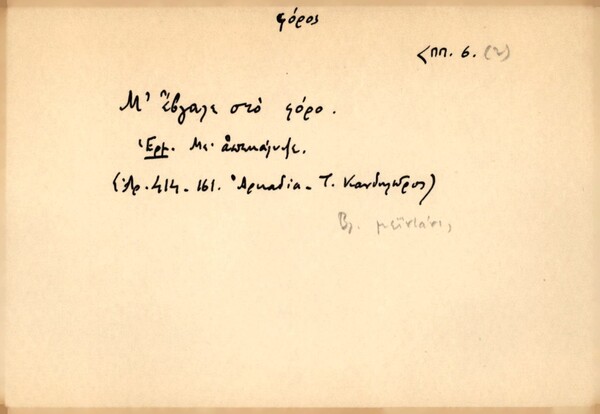 φόρος
ΛΠΠ. 6. (2)
Μ' ἔβγαλε στὸ φόρο.
Ἑρμ. Μὲ ἀπεκάλυψε.
(Ἀρ. 414 - 161. Ἀρκαδία - Τ. Κανδηλῶρος)
Βλ. μεϊντάνι,